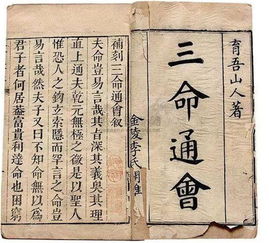 育吾山人著
三命通會
補刻三命通會敘
夫命豈易言哉其旨深其義奧其理
直上通夫乾元無極之後是以聖人
惟恐人之鉤玄索隱而罕言之命豈
易言哉然夫子又曰不知命無以為
君子者何居蓋富貴利達命也困窮